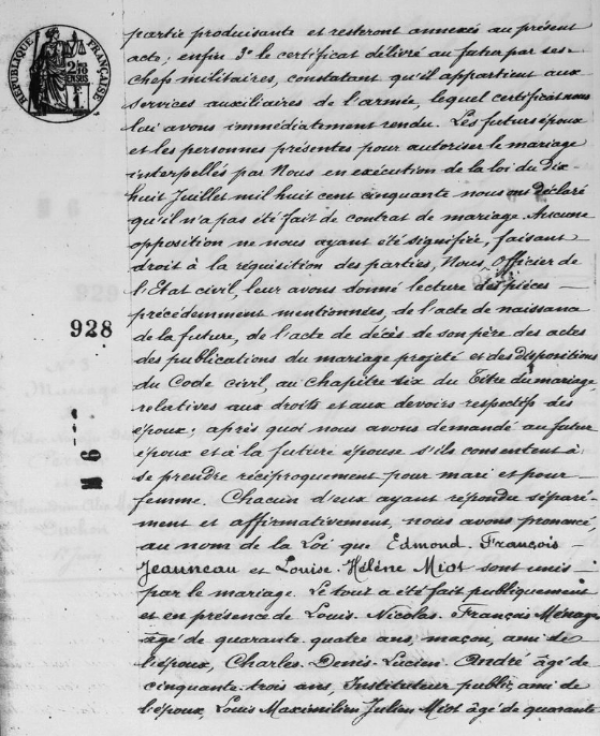 RÉPUBLIQUE FRANÇAISE
partie produisante et resteront annexés au présent
acte; enfin 3° le certificat délivré au futur par ses
chefs militaires, constatant qu'il appartient aux
services auxiliaires de l'armée, lequel certificat nous
lui avons immédiatement rendu. Les futurs époux
et les personnes présentes pour autoriser le mariage
interpellés par Nous en exécution de la loi du dix
huit Juillet mil huit cent cinquante nous ont déclaré
qu'il n'a pas été fait de contrat de mariage. Aucune
opposition ne nous ayant été signifiée, faisant
droit à la réquisition des parties, Nous, Officier de
l'Etat civil, leur avons donné lecture des pièces
précédemment mentionnées, de l'acte de naissance
928
de la future, de l'acte de décès de son père des actes
des publications du mariage projeté et des dispositions
du Code civil, au chapitre six du Titre du mariage,
relatives aux droits et aux devoirs respectifs des
époux; après quoi nous avons demandé au futur
époux et à la future épouse s'ils consentent à
N 6
se prendre réciproquement pour mari et pour
femme. Chacun d'eux ayant répondu séparé-
ment et affirmativement, nous avons prononcé,
au nom de la Loi que Edmond François
Jeanneau et Louise Hélène Miot sont unis
par le mariage. Le tout a été fait publiquement
et en présence de Louis Nicolas François Ménage
âgé de quarante quatre ans, maçon, ami de
l'époux, Charles Denis Lucien André âgé de
cinquante trois ans, Instituteur public, ami de
l'époux, Louis Maximilien Julien Miot âgé de quarante